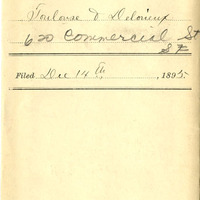 Toulouse & Delorieux
620 Commercial St
S F
Filed Dec 14th, 1895.